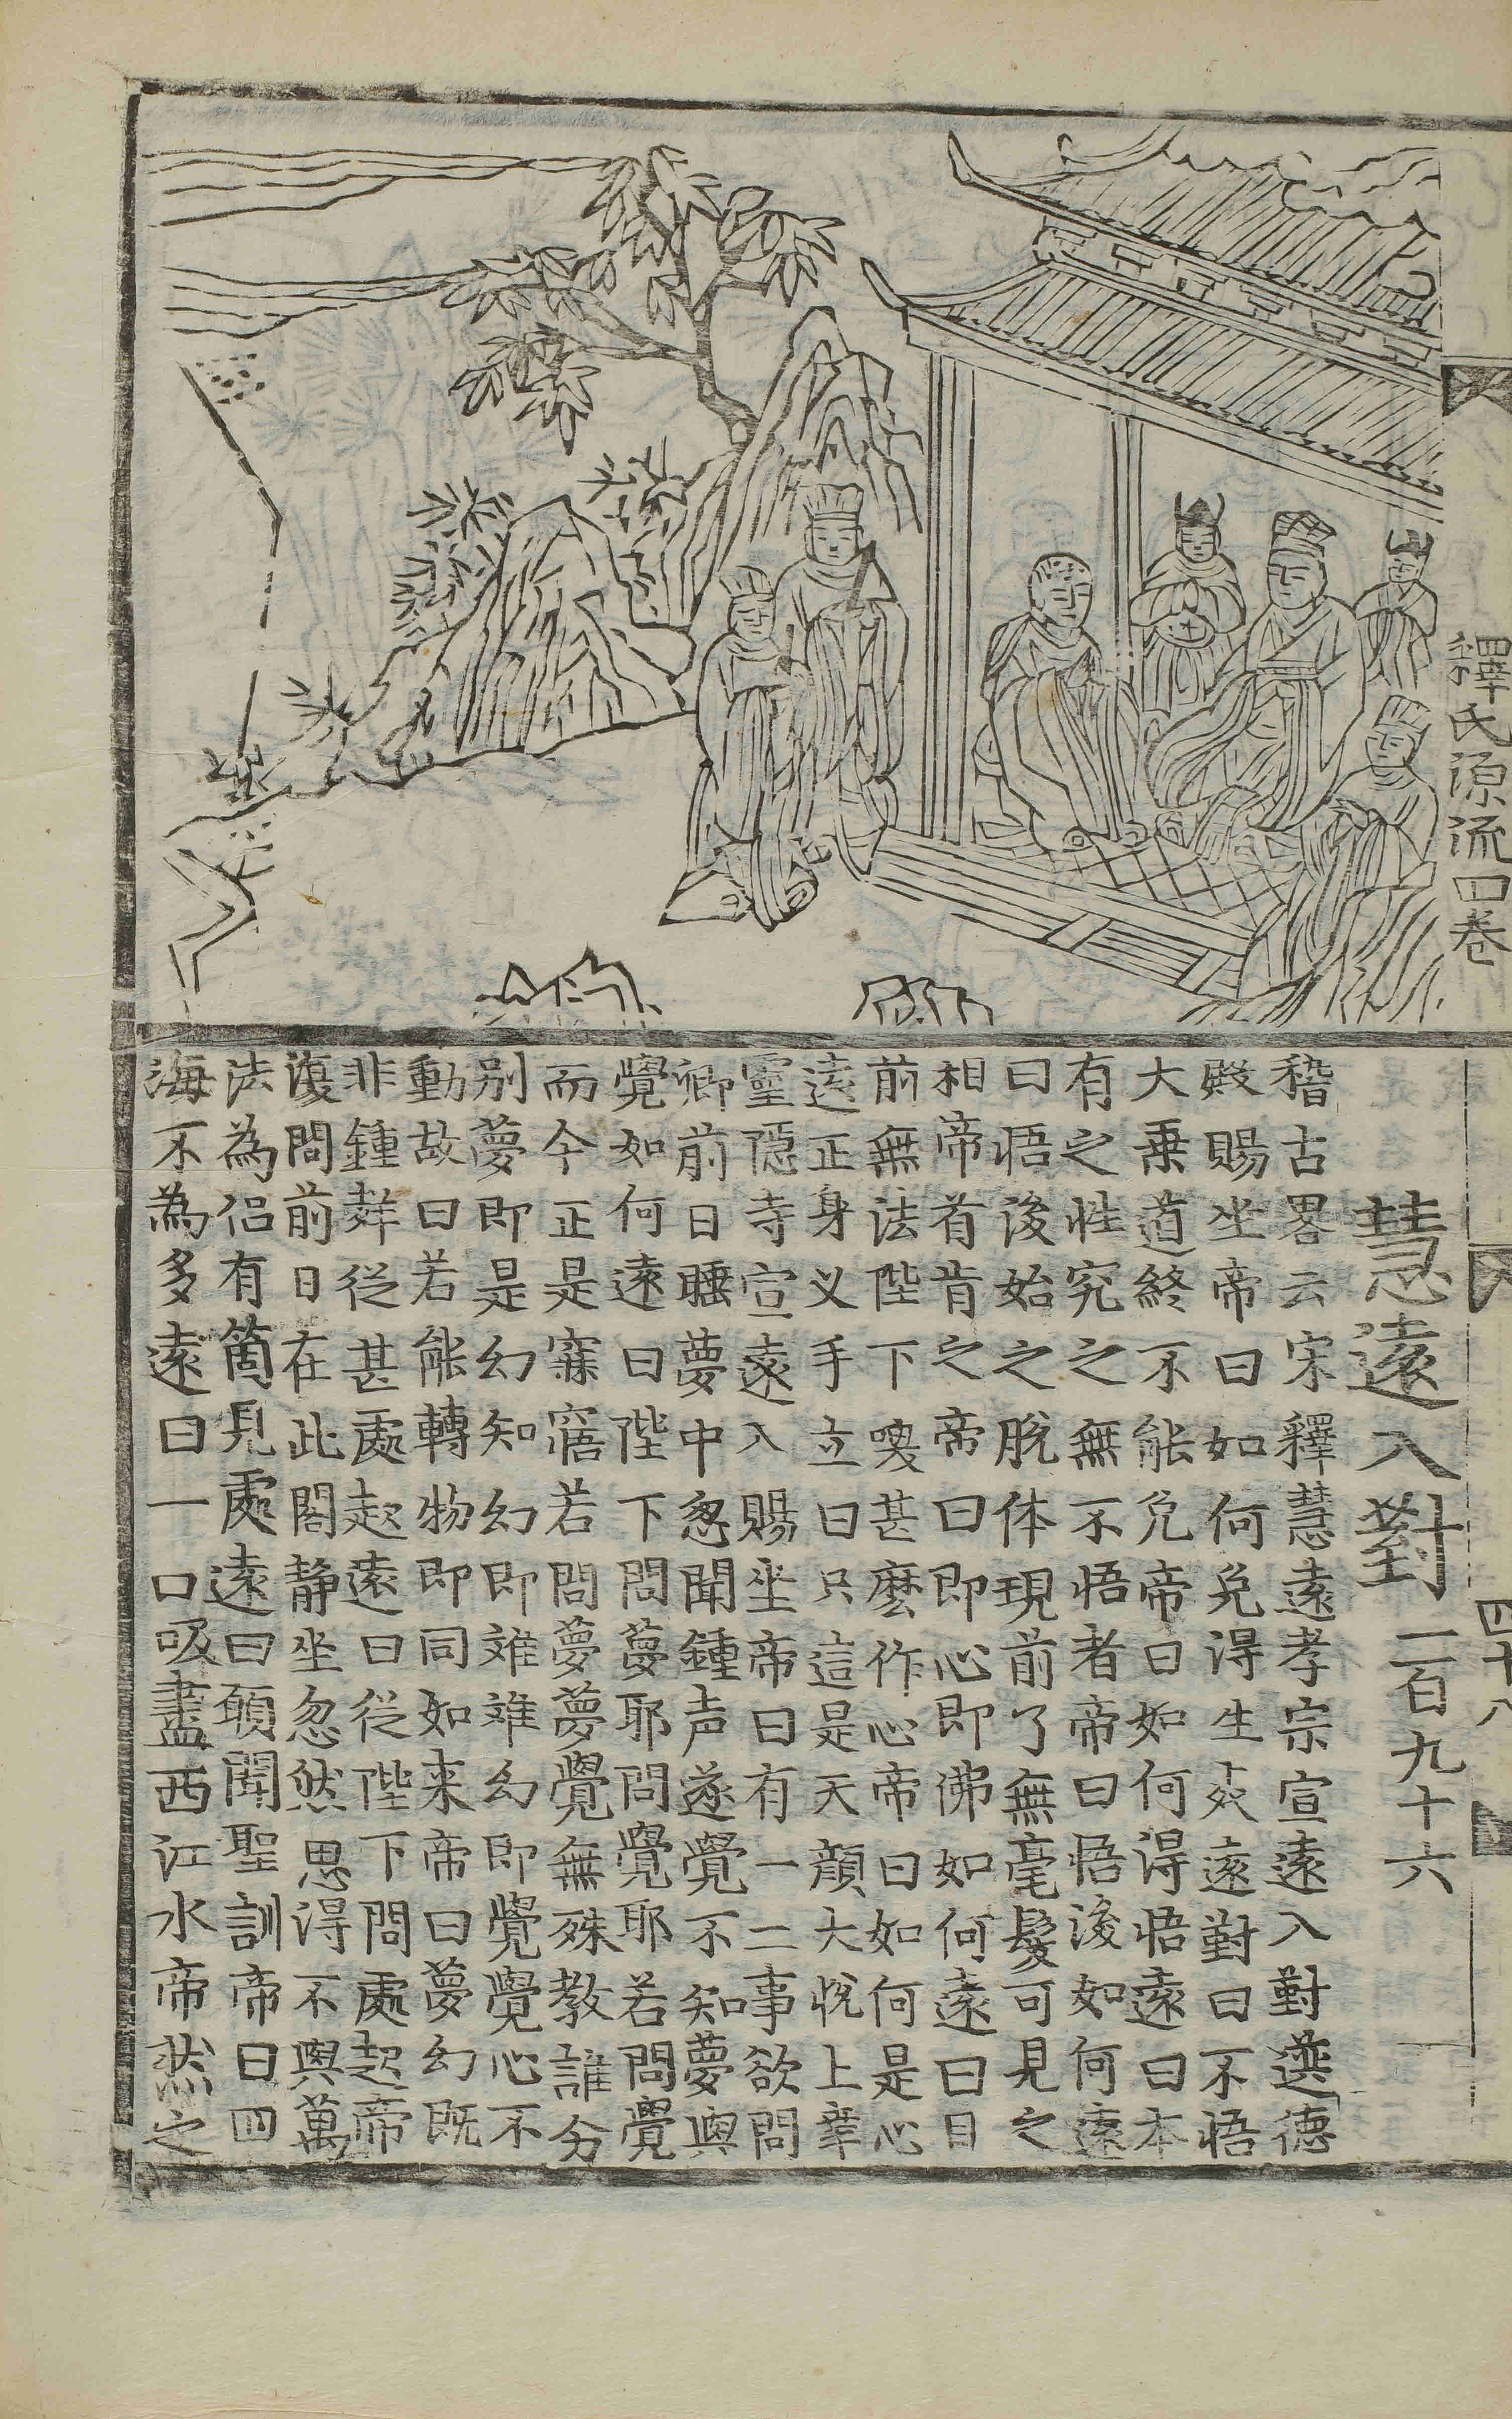 釋氏源流四卷
四十八
慧遠入對 二百九十六
稽古畧云宋釋慧遠孝宗宣遠入對選德
殿賜坐帝曰如何免得生死遠對曰不悟
大乗道終不能免帝曰如何得悟遠曰本
有之性究之無不悟者帝曰悟後如何遠
曰悟後始之脫体現前了無毫髮可見之
相帝首肯之帝曰即心即佛如何遠曰目
前無法陛下喚甚麽作心帝曰如何是心
遠正身义手立曰只這是天顔大悅上幸
靈隱寺宣遠入賜坐帝曰有一二事欲問
卿前日睡夢中忽聞鍾声遂覺不知夢與
覺如何遠曰陛下問夢耶問覺耶若問覺
而今正是寐寤若問夢夢覺無殊教誰分
别夢即是幻知幻即離離幻即覺覺心不
動故曰若能轉物即同如来帝曰夢幻既
非鍾聲從甚處起遠曰從陛下問處起帝
復問前日在此閣静坐忽然思得不與萬
法為侣有箇見處遠曰頋聞聖訓帝曰四
海不為多遠曰一口吸盡西江水帝然之